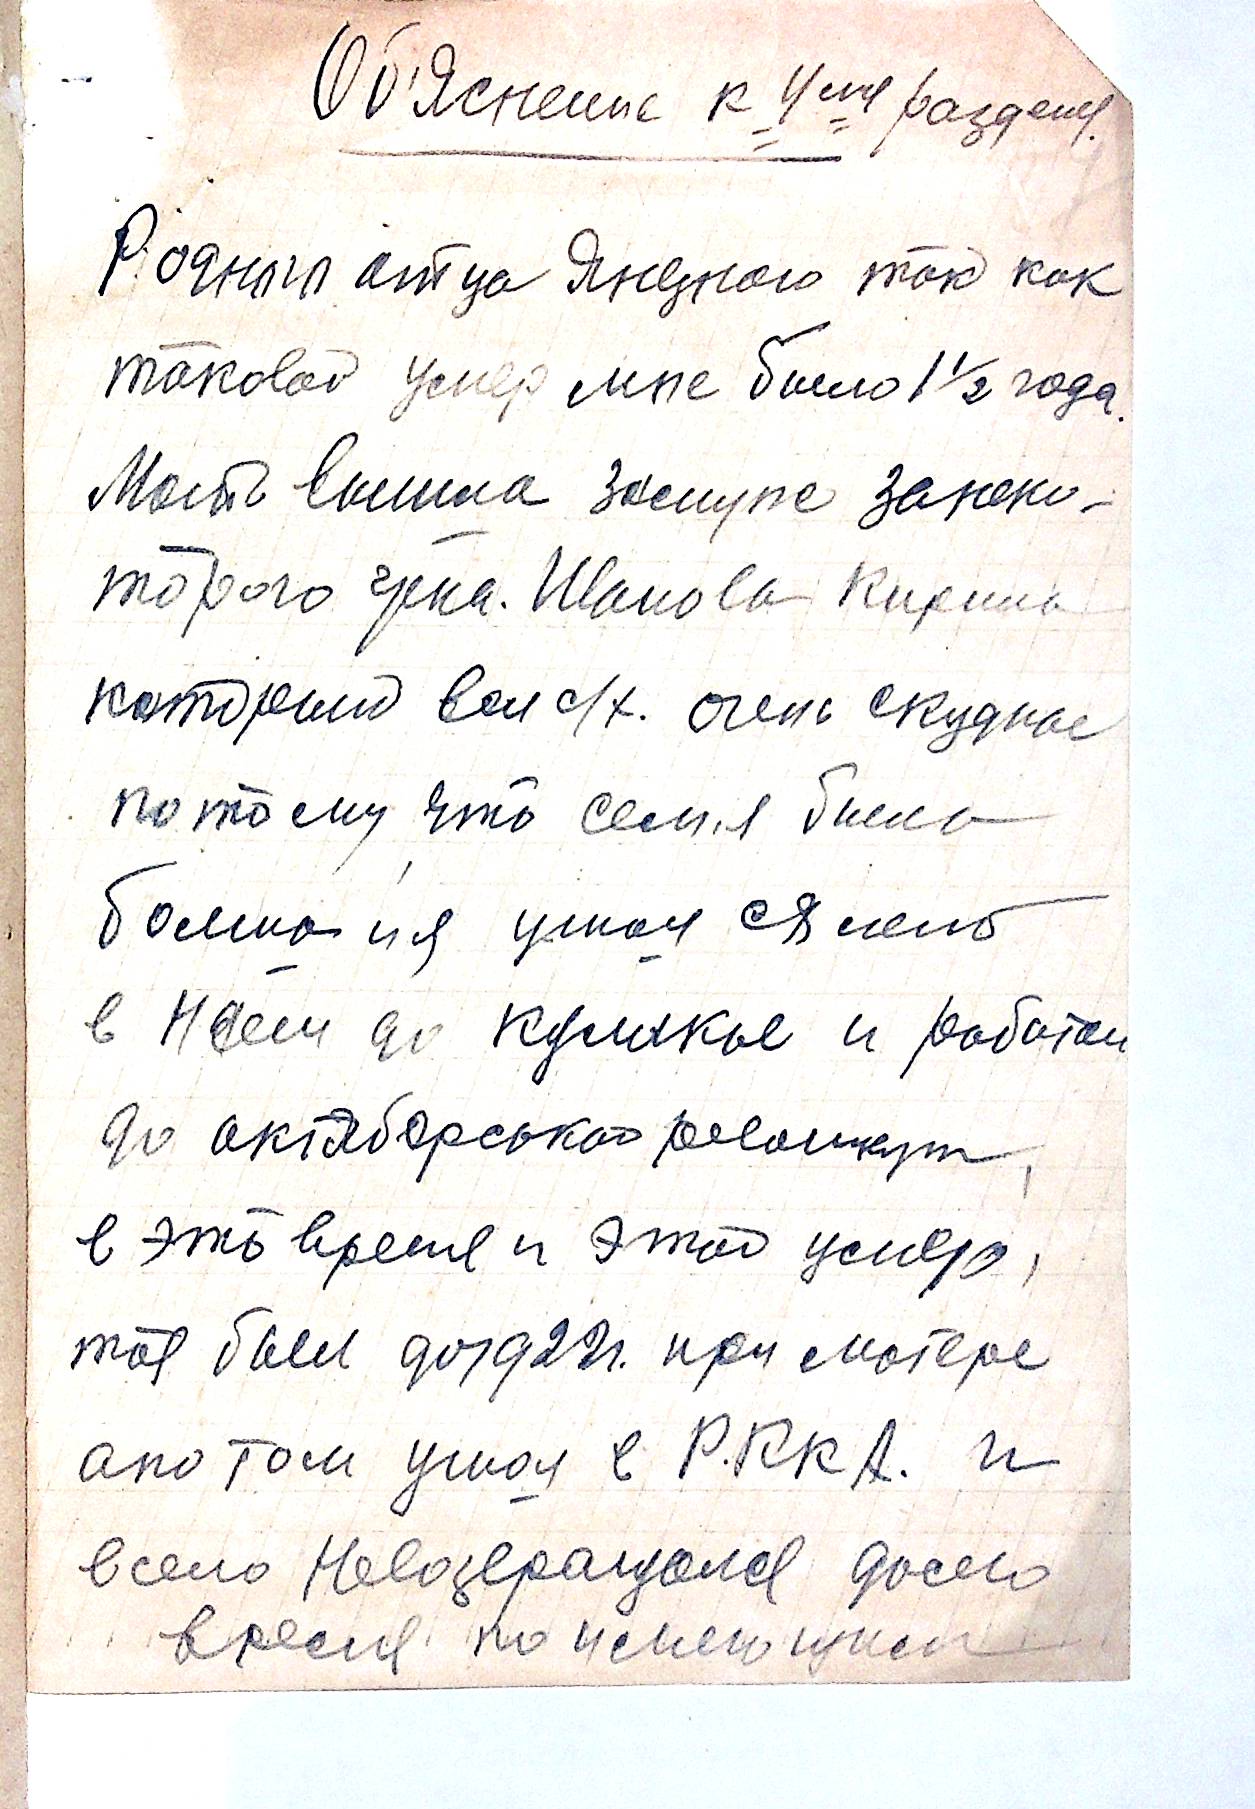 Об'Яснение к 4му разделу.
Родныи отца Янезнаю так как
таковой умер мне было 1 1/2 года.
Мать вышла замуже занеко-
торого гр-на. Иванова Кирила
который вел с/х. очень скудное
потому что семия была
болшая и я ушол с 9 лет
в Наем до кулакое и работал
до октяборськой революции,
в это время и этой умер,
тоя был до 1922г. при матере
апотом ушол в Р.К.К.А. и
всело Невозвращался досего
время по имеющим